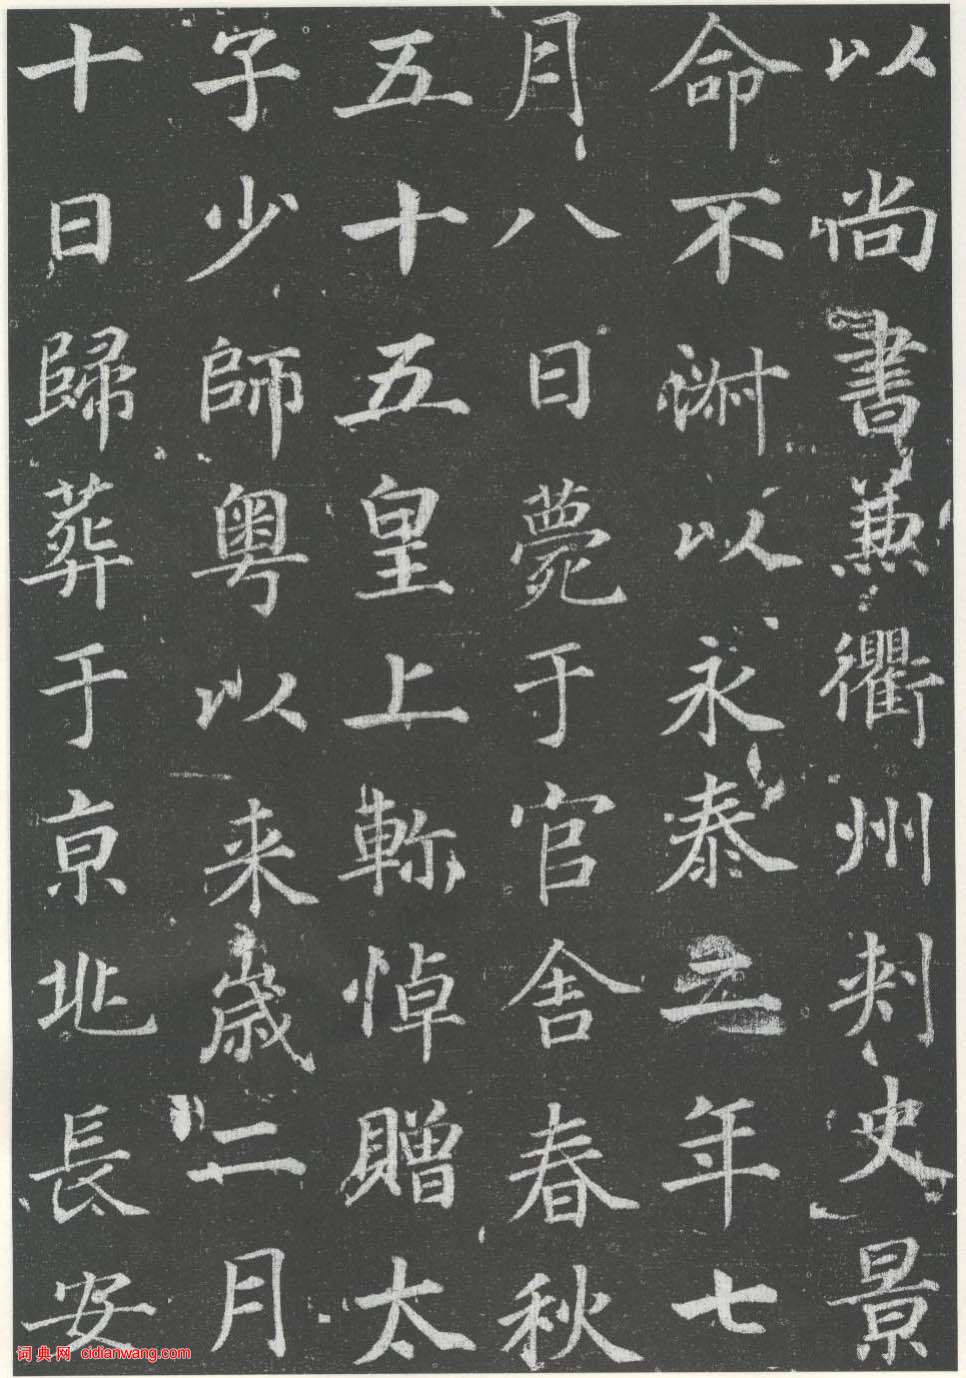 以尚書兼衢州刺史景
命不融以永泰二年七
月八日薨于官舍春秋
五十五皇上輟悼贈太
子少師粤以来歲二月
十日歸葬于京北長安
词典网 cidianwang.com